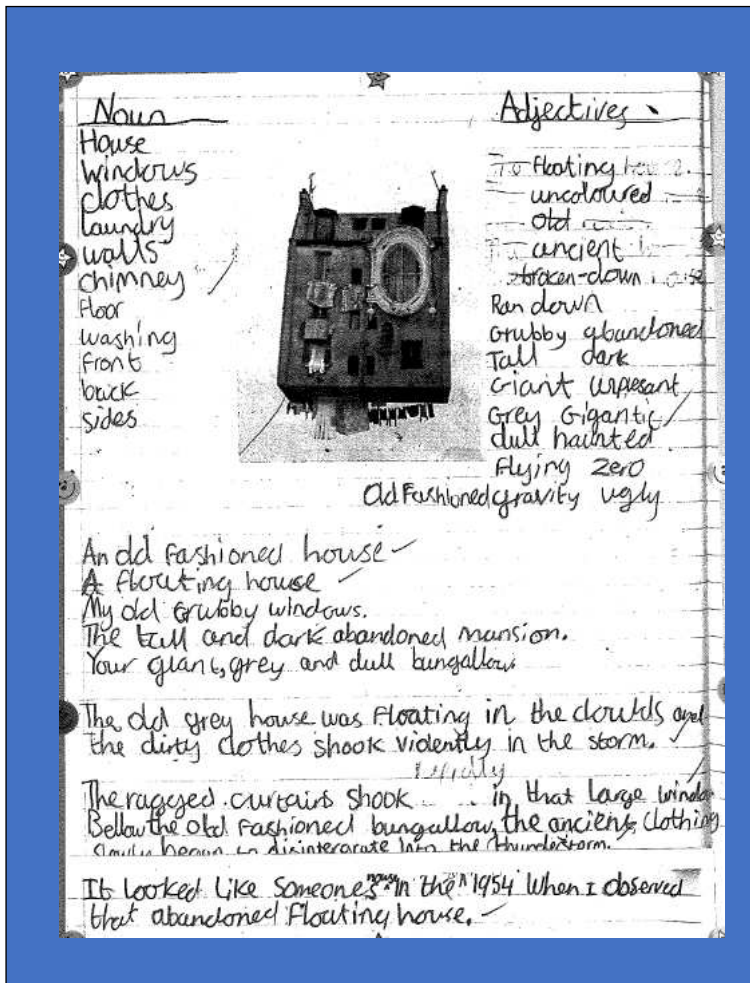 Noun
House
windows
clothes
laundry
walls
chimney
floor
washing
front
brick
sides
Adjectives
floating
uncoloured
old
ancient
broken-down
Ran down
Grubby abandoned
Tall dark
Giant unplesant
Grey Gigantic
dull haunted
Flying Zero
Old Fashioned gravity ugly
An old fashioned house
A floating house
My old Grubby windows.
The tall and dark abandoned mansion.
Your giant, grey and dull bungallow.
The old grey house was floating in the cloulds and
the dirty clothes shook violently in the storm.
The ragged curtains shook in that large window
Bellow the old fashioned bungallow, the ancient clothing
slowly began to disintergrate into the thunderstorm.
It looked like someones house in the 1954 when I observed
that abandoned floating house.